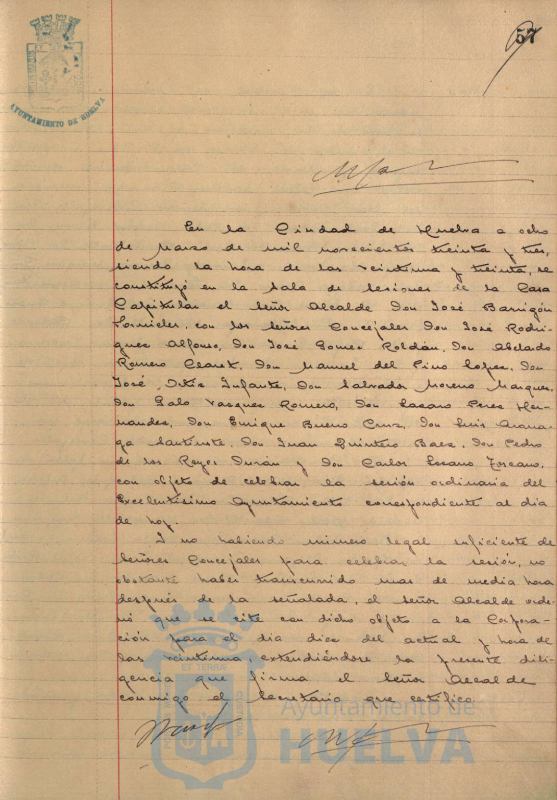 57
AYUNTAMIENTO DE HUELVA
En la Ciudad de Huelva a ocho
de Marzo de mil novecientos treinta y tres,
siendo la hora de las veintiuna y treinta, se
constituyó en la Sala de Sesiones de la Casa
Capitular el Señor Alcalde Don José Barrigón
Fornieles, con los Señores Concejales Don José Rodri-
guez Alfonso, Don José Gomez Roldán, Don Abelardo
Romero Claret, Don Manuel del Pino Lopez, Don
José Ortiz Infante, Don Salvador Moreno Marquez,
Don Galo Vazquez Romero, Don Lazaro Perez Her-
nandez, Don Enrique Bueno Cruz, Don Luis
Don Juan Quintero Baez, Don Pedro
de los Reyes Durán y Don Carlos Lozano Toscano,
con objeto de celebrar la sesión ordinaria del
Excelentísimo Ayuntamiento correspondiente al dia
de hoy.
Y no habiendo número legal suficiente de
Señores Concejales para celebrar la sesión, no
obstante haber transcurrido mas de media hora
después de la señalada, el Señor Alcalde orde-
nó que se cite con dicho objeto a la Corpora-
ción para el dia diez del actual y hora de
las veintiuna, extendiéndose la presente dili-
gencia que firma el Señor Alcalde
conmigo el Secretario que certifico.
Ayuntamiento de
HUELVA